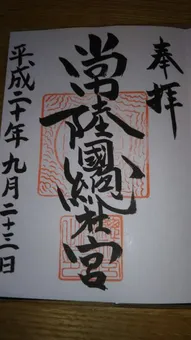 奉拝
常陸國總社宮
平成二十年九月二十三日